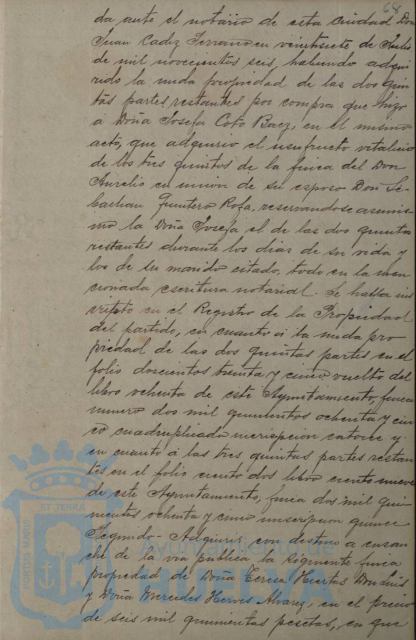 68
da ante el notario de esta ciudad Don
Juan Cadiz Serrano en veintisiete de Julio
de mil novecientos seis, habiendo adqui
rido la nuda propiedad de las dos quin
tas partes restantes por compra que hizo
á Doña Josefa Coto Baez, en el mismo
acto, que adquirio el usufructo vitalicio
de los tres quintos de la finca del Don
Aurelio en union de su esposo Don Se
bastian Quintero Rofa, reservandose asimis
mo la Doña Josefa el de las dos quintas
restantes durante los dias de su vida y
los de su marido citado, todo en la men
cionada escritura notarial. Se halla ins
cripto en el Registro de la Propiedad
del partido, en cuanto á la nuda pro
piedad de las dos quintas partes en el
folio doscientos treinta y cinco vuelto del
libro ochenta de este Ayuntamiento, finca
numero dos mil quinientos ochenta y cin
co cuadruplicado inscripcion catorce y
en cuanto á las tres quintas partes restan
tes en el folio ciento dos libro ciento nueve
de este Ayuntamiento, finca dos mil qui
nientos ochenta y cinco inscripcion quince
Segundo - Adquirir con destino a ensan
che de la via publica la siguiente finca
propiedad de Doña Teresa Huertas Don Luis
y Doña Mercedes Hervés Alvarez, en el precio
de seis mil quinientas pesetas, en que
PORTUS MARIS ET TERRÆ